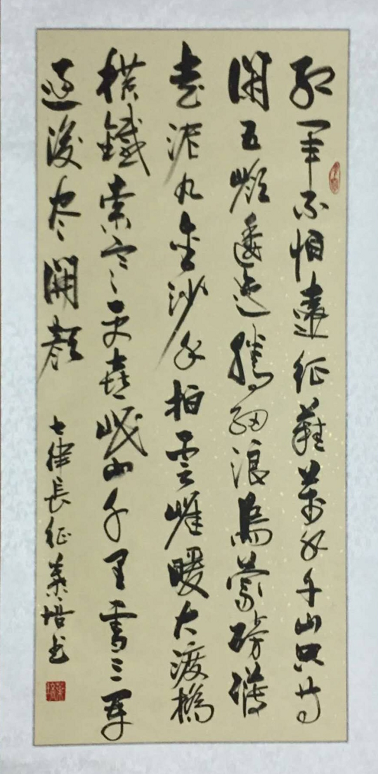 紅軍不怕遠征難萬水千山只等
閑五嶺逶迤騰細浪烏蒙磅礴
走泥丸金沙水拍雲崖暖大渡橋
橫鐵索寒更喜岷山千里雪三軍
過後尽開顏
七律長征 培书